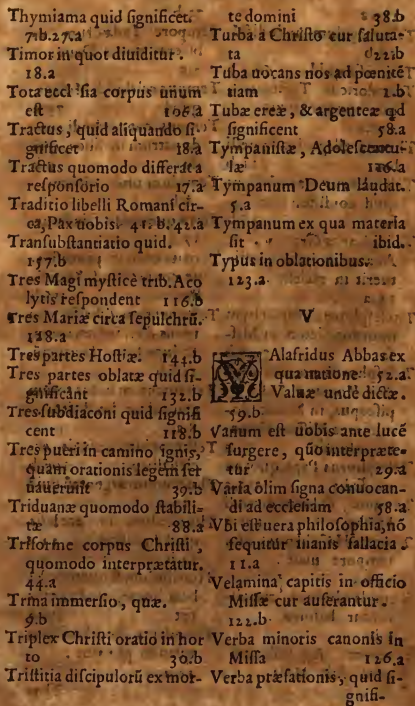 Thymiama quid ſignificet.
7.b.27.a
Timor in quot diuiditur.
18.a
Tota eccleſia corpus unum
eſt 106.a
Tractus, quid aliquando ſi-
gnificet 18.a
Tractus quomodo differat a
reſponſorio 17.a
Traditio libelli Romani cir-
ca, Pax uobis. 41. b. 42.a
Tranſubſtantiatio quid.
157.b
Tres Magi myſticè trib. Aco
lytis reſpondent 116.b
Tres Mariæ circa ſepulchrū.
128.a
Tres partes Hoſtiæ. 144.b
Tres partes oblatæ quid ſi-
gnificant 132.b
Tres ſubdiaconi quid ſignifi
cent 118.b
Tres pueri in camino ignis,
quam orationis legem ſer
uauerunt 39.b
Triduanæ quomodo ſtabili-
tæ 88.a
Triforme corpus Chriſti,
quomodo interprætatur.
44.a
Trina immerſio, quæ.
9.b
Triplex Chriſti oratio in hor
to 30.b
Triſtitia diſcipulorū ex mor-
te domini 38.b
Turba a Chriſto cur ſaluta-
ta 22.b
Tuba uocans nos ad pœnitē
tiam 1.b
Tubæ ereæ, & argenteæ qd
ſignificent 58.a
Tympaniſtæ, Adoleſcentu-
læ 126.a
Tympanum Deum laudat.
5.a
Tympanum ex qua materia
ſit ibid.
Typus in oblationibus.
123.a
V
VAlafridus Abbas ex
qua natione. 52.a
Valuæ unde dictæ.
59.b
Vanum eſt uobis ante lucē
ſurgere, quō interpræte-
tur 29.a
Varia ōlim ſigna conuocan-
di ad eccleſiam 58.a
Vbi eſt uera philoſophia, nō
ſequitur inanis fallacia
11.a
Velamina capitis in officio
Miſſæ cur auferantur.
122.b
Verba minoris canonis in
Miſſa 126.a
Verba præfationis, quid ſi-
gnifi-